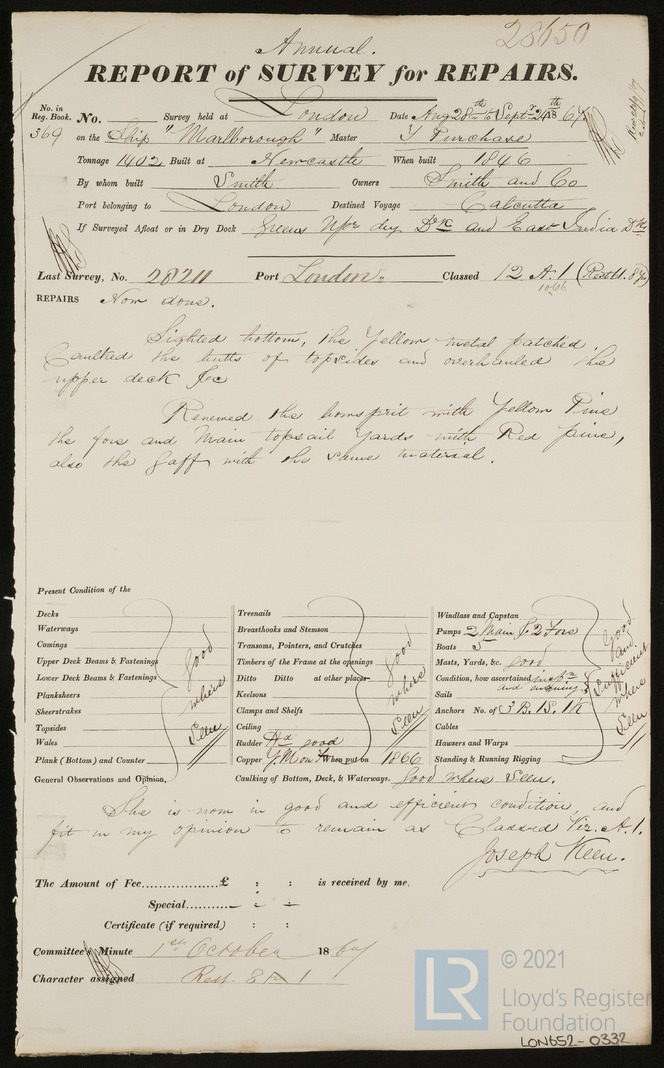 28650
Annual.
REPORT of SURVEY for REPAIRS.
No. in Reg. Book. No. Survey held at London Date Aug 28th to Septr 24th 1867
369 on the Ship "Marlborough" Master Y Purchase
Tonnage 1402 Built at Newcastle When built 1846
By whom built Smith Owners Smith and Co
Port belonging to London Destined Voyage Calcutta
If Surveyed Afloat or in Dry Dock Greens Upr dry Dk and East India Dks
Last Survey, No. 28211 Port London Classed 12 A.1 (Rest 61. 8 yrs)
10,66
REPAIRS Now done.
Sighted bottom, the Yellow metal patched
Caulked the butts of topsides and overhauled the
upper deck &c
Renewed the bowsprit with Yellow Pine
the fore and Main topsail yards with Red pine,
also the Gaff with the same material.
Present Condition of the
Decks
Waterways
Comings
Upper Deck Beams & Fastenings
Lower Deck Beams & Fastenings
Planksheers
Sheerstrakes
Topsides
Wales
Plank (Bottom) and Counter
good where seen
Treenails
Breasthooks and Stemson
Transoms, Pointers, and Crutches
Timbers of the Frame at the openings
Ditto Ditto at other places
Keelsons
Clamps and Shelfs
Ceiling
Rudder Hd good
Copper Y.M on F When put on 1866
good where seen
Windlass and Capstan
Pumps 2 Main & 2 Fore
Boats 5
Masts, Yards, &c. good
Condition, how ascertained
and
Sails
Anchors No. of 3 B. 1 S. 1 K
Cables
Hawsers and Warps
Standing & Running Rigging
Good and Sufficient where seen
General Observations and Opinion, Caulking of Bottom, Deck, & Waterways. Good where seen.
She is now in good and efficient condition, and
fit in my opinion to remain as Classed Viz. A.1.
Joseph Keen.
The Amount of Fee................£ : : is received by me,
Special.......... - : -
Certificate (if required) : :
Committee's Minute 1st October 1867
Character assigned Rest. 61 A 1
© 2021
LR
Lloyd's Register
Foundation
LON652-0332